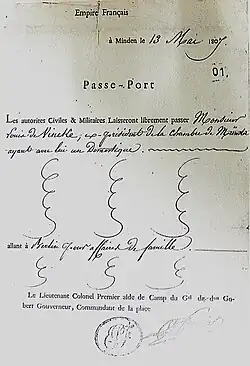 Empire Français
à Minden le 13 Mai 1807
01.
Passe-Port
Les autorites Civiles & Militaires Laisseront librement passer Monsieur
de Vincke, ex-président de la chambre de
ayant avec lui un Domestique.
allant à Berlin pour affaires de famille.
Le Lieutenant Colonel Premier aide de Camp du Gal de don Go-
bert Gouverneur, Commandant de la place